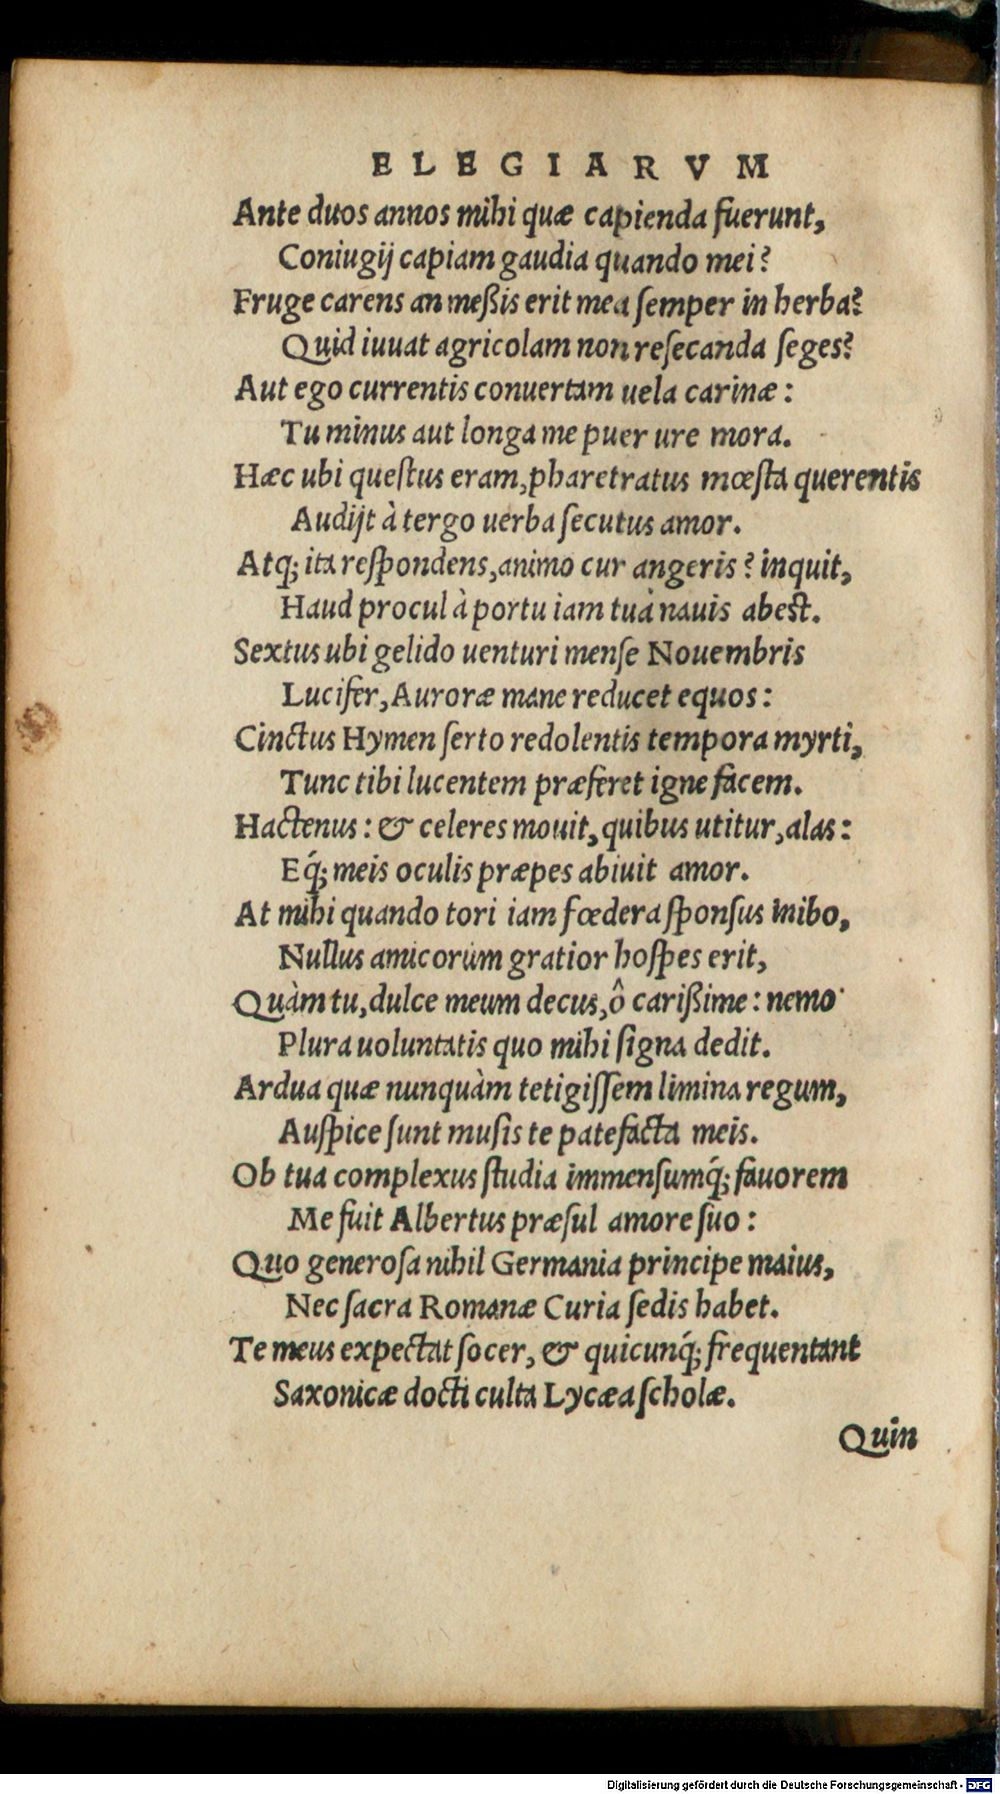 ELEGIARVM
Ante duos annos mihi quæ capienda fuerunt,
Coniugij capiam gaudia quando mei?
Fruge carens an meßis erit mea ſemper in herba?
Quid iuuat agricolam non reſecanda ſeges?
Aut ego currentis conuertam uela carinæ:
Tu minus aut longa me puer ure mora.
Hæc ubi queſtus eram, pharetratus mœſta querentis
Audijt à tergo uerba ſecutus amor.
Atq; ita reſpondens, animo cur angeris? inquit,
Haud procul à portu iam tua nauis abest.
Sextus ubi gelido uenturi menſe Nouembris
Lucifer, Auroræ mane reducet equos:
Cinctus Hymen ſerto redolentis tempora myrti,
Tunc tibi lucentem præferet igne facem.
Hactenus: & celeres mouit, quibus utitur, alas:
Eq́; meis oculis præpes abiuit amor.
At mihi quando tori iam fœdera ſponſus inibo,
Nullus amicorum gratior hoſpes erit,
Quàm tu, dulce meum decus, ô carißime: nemo
Plura uoluntatis quo mihi ſigna dedit.
Ardua quæ nunquàm tetigiſſem limina regum,
Auſpice ſunt muſis te patefacta meis.
Ob tua complexus ſtudia immenſumq́; fauorem
Me fuit Albertus præſul amore ſuo:
Quo generoſa nihil Germania principe maius,
Nec ſacra Romanæ Curia ſedis habet.
Te meus expectat ſocer, & quicunq́; frequentant
Saxonicæ docti culta Lycæa ſcholæ.
Quin
Digitalisierung gefördert durch die Deutsche Forschungsgemeinschaft - DFG